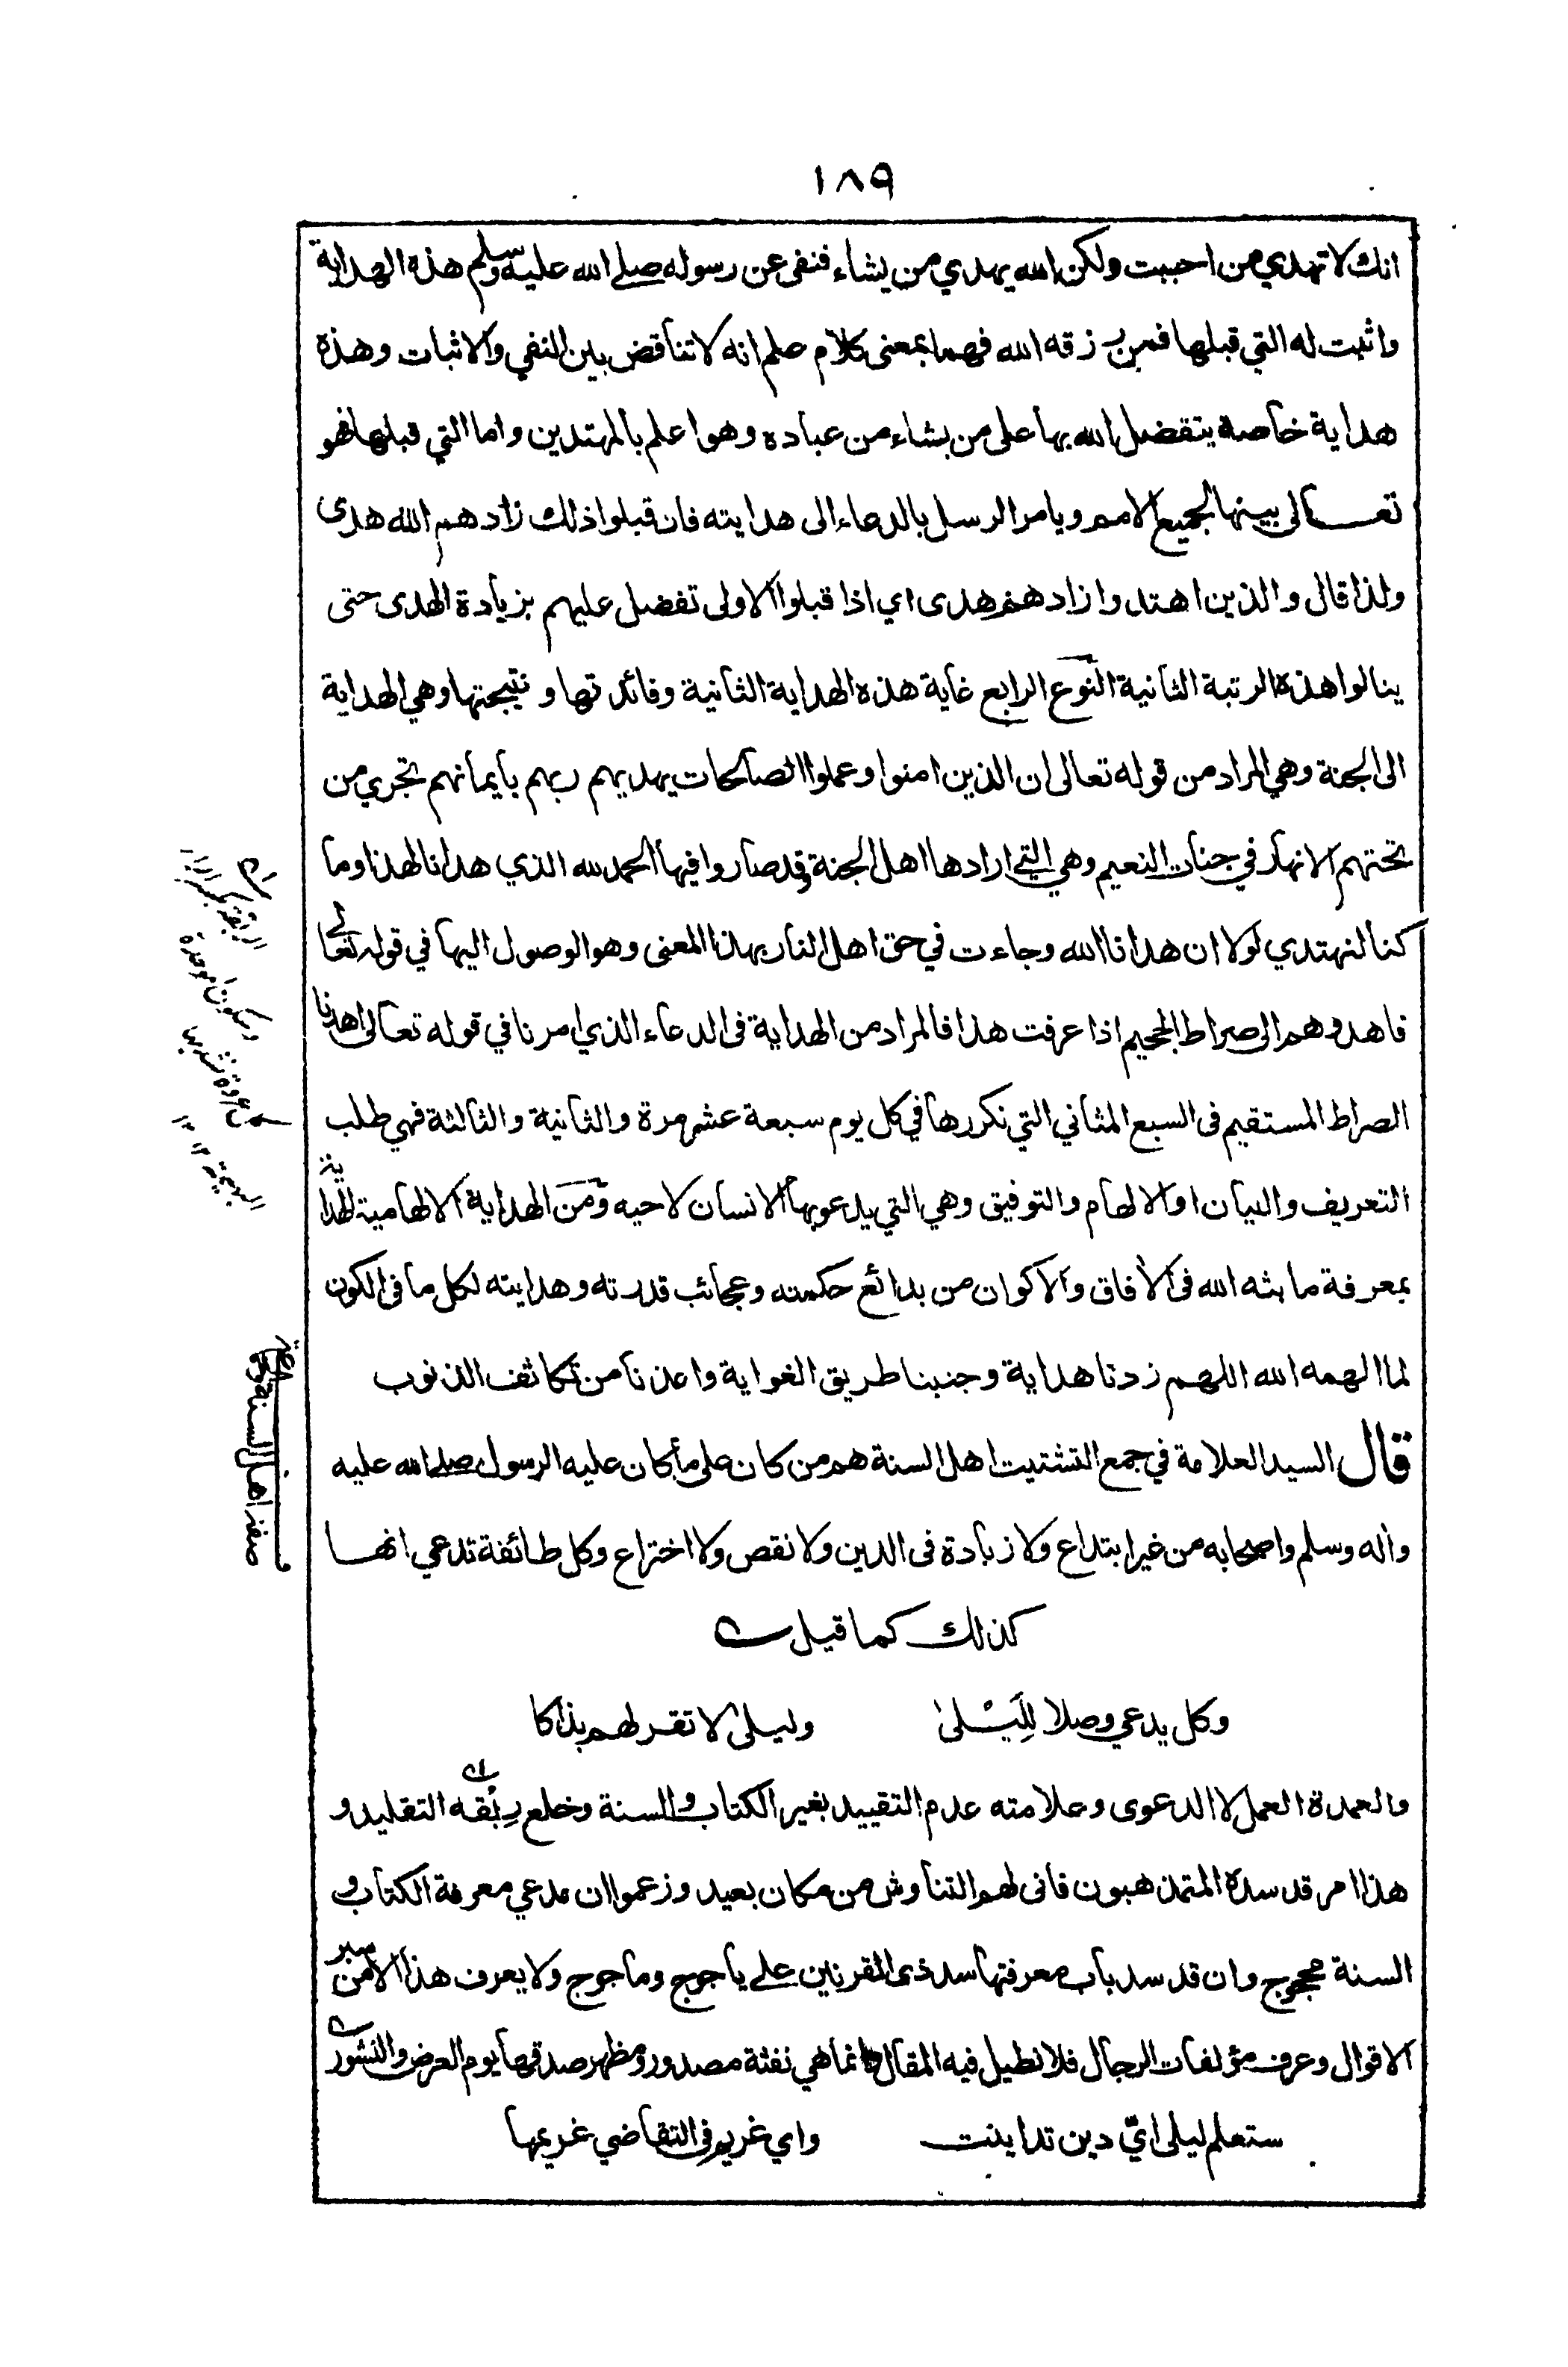 ١٨٩
انك لا تهدي من احببت ولكن الله يهدي من يشاء فنفى عن رسوله صلے الله عليه وسلم هذه الهداية
واثبت له التي قبلها فمن رزقه الله فهما بمعنى كلام علم انه لا تناقض بين النفي والاثبات وهذه
هداية خاصة يتفضل الله بها على من يشاء من عباده وهو اعلم بالمهتدين واما التي قبلها فهو
تعالى يبينها لجميع الامم ويامر الرسل بالدعاء الى هدايته فان قبلوا ذلك زادهم الله هدى
ولذا قال والذين اهتدوا زادهم هدى اي اذا قبلوا الاولى تفضل عليهم بزيادة الهدى حتى
ينالوا هذه الرتبة الثانية النوع الرابع غاية هذه الهداية الثانية وفائدتها ونتيجتها وهي الهداية
الى الجنة وهي المراد من قوله تعالى ان الذين امنوا وعملوا الصالحات يهديهم ربهم بايمانهم تجري من
تحتهم الانهار في جنات النعيم وهي التي ارادها اهل الجنة وقد صاروا فيها الحمد لله الذي هدانا لهذا وما
كنا لنهتدي لولا ان هدانا الله وجاءت في حق اهل النار بهذا المعنى وهو الوصول اليها في قوله تعالى
فاهدوهم الى صراط الجحيم اذا عرفت هذا فالمراد من الهداية فى الدعاء الذي امرنا في قوله تعالى اهدنا
الصراط المستقيم فى السبع المثاني التي نكررها في كل يوم سبعة عشر مرة والثانية والثالثة فهي طلب
التعريف والبيان او الالهام والتوفيق وهي التي يدعو بها الانسان لاخيه ومن الهداية الالهامية الهداية
بمعرفة ما بثه الله فى الافاق والاكوان من بدائع حكمته وعجائب قدرته وهدايته لكل ما فى الكون
لما الهمه الله اللهم زدنا هداية وجنبنا طريق الغواية واعذنا من تكاثف الذنوب
قال السيد العلامة في جمع التشتيت اهل السنة هم من كان على ما كان عليه الرسول صلى الله عليه
واله وسلم واصحابه من غير ابتداع ولا زيادة فى الدين ولا نقص ولا اختراع وكل طائفة تدعي انها
كذلك كما قيل
وكل يدعي وصلا لِلَيْلى وليلى لا تقر لهم بذاكا
والعمدة العمل لا الدعوى وعلامته عدم التقييد بغير الكتاب والسنة وخلع رِبْقه التقليد و
هذا امر قد سده المتمذهبون فانى لهم التناوش من مكان بعيد وزعموا ان مدعي معرفة الكتاب و
السنة محجوج وان قد سد باب معرفتها سد ذى القرنين على ياجوج وماجوج ولا يعرف هذا الامن سبر
الاقوال وعرف مؤلفات الرجال فلا نطيل فيه المقال فانما هي نفثة مصدور ومظهر صدقها يوم العرض والنشور
ستعلم ليلى ايّ دين تداينت واي غريم فى التقاضي غريمها